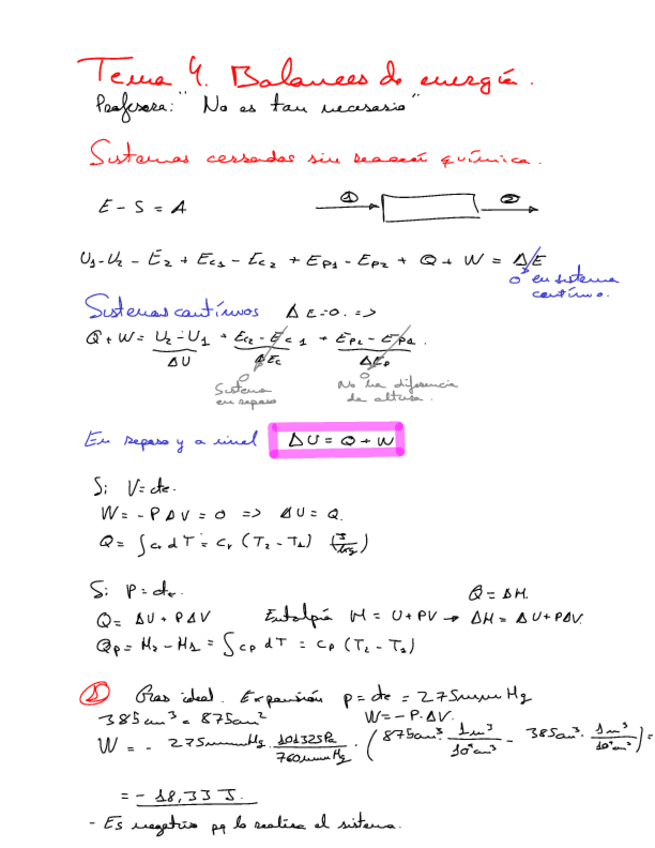 Tema 4. Balances de energía.
Profesora: "No es tan necesario"
Sistemas cerrados sin reacción química.
E - S = A
① ②
U1 - U2 - E2 + Ec1 - Ec2 + Ep1 - Ep2 + Q + W = ΔE
0 en sistema
continuo.
Sistemas continuos Δ E = 0. =>
Q + W = U2 - U1 + Ec2 - Ec1 + Ep2 - Ep1.
ΔU ΔEc ΔEp
0 0
Sistema en reposo
No ha diferencia de altura.
En reposo y a nivel ΔU = Q + W
Si V = cte.
W = - P ΔV = 0 => ΔU = Q.
Q = ∫ cv dT = cv (T2 - T1) (J/kg)
Si P = cte. Q = ΔH.
Q = ΔU + PΔV Entalpía H = U + PV → ΔH = ΔU + PΔV.
Qp = H2 - H1 = ∫ cp dT = cp (T2 - T1)
① Gas ideal. Expansión p = cte = 275mmHg
385cm³ a 875cm² W = - P. ΔV.
W = - 275mmHg . 101325Pa/760mmHg . (875cm³ . 1m³/10⁶cm³ - 385cm³ . 1m³/10⁶cm³) =
= - 18,33 J.
- Es negativo pq lo realiza el sistema.